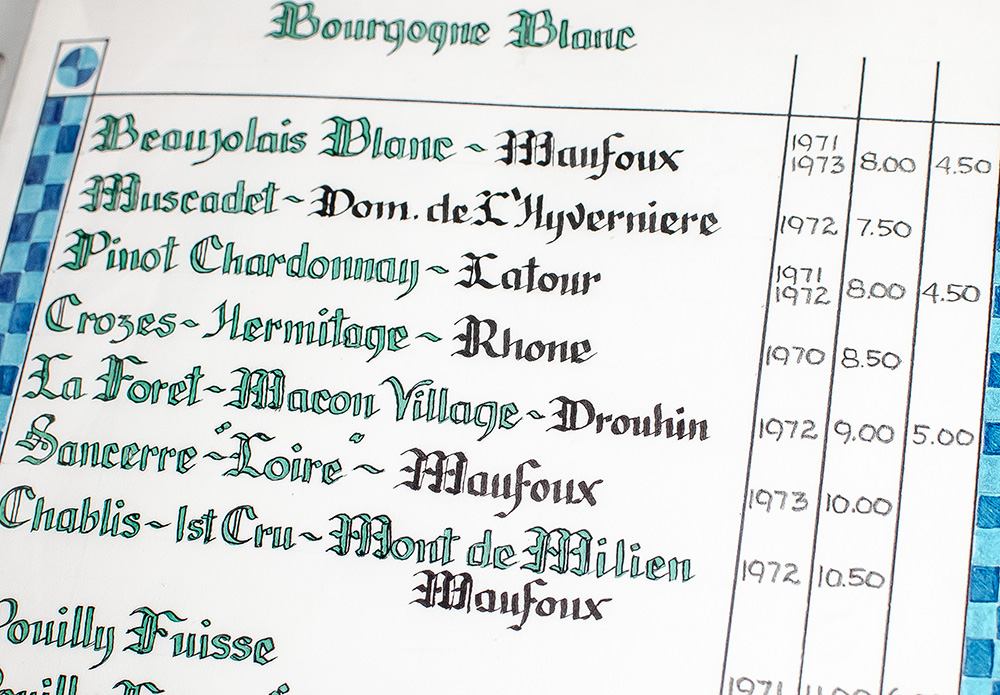 Bourgogne Blanc
Beaujolais Blanc ~ Maufoux 1971 1973 8.00 4.50
Muscadet ~ Dom. de L'Hyverniere 1972 7.50
Pinot Chardonnay ~ Latour 1971 1972 8.00 4.50
Crozes ~ Hermitage ~ Rhone 1970 8.50
La Foret ~ Macon Village ~ Drouhin 1972 9.00 5.00
Sancerre ~ "Loire" ~ Maufoux 1973 10.00
Chablis ~ 1st Cru ~ Mont de Milien 1972 10.50
Maufoux
Pouilly Fuisse
1971